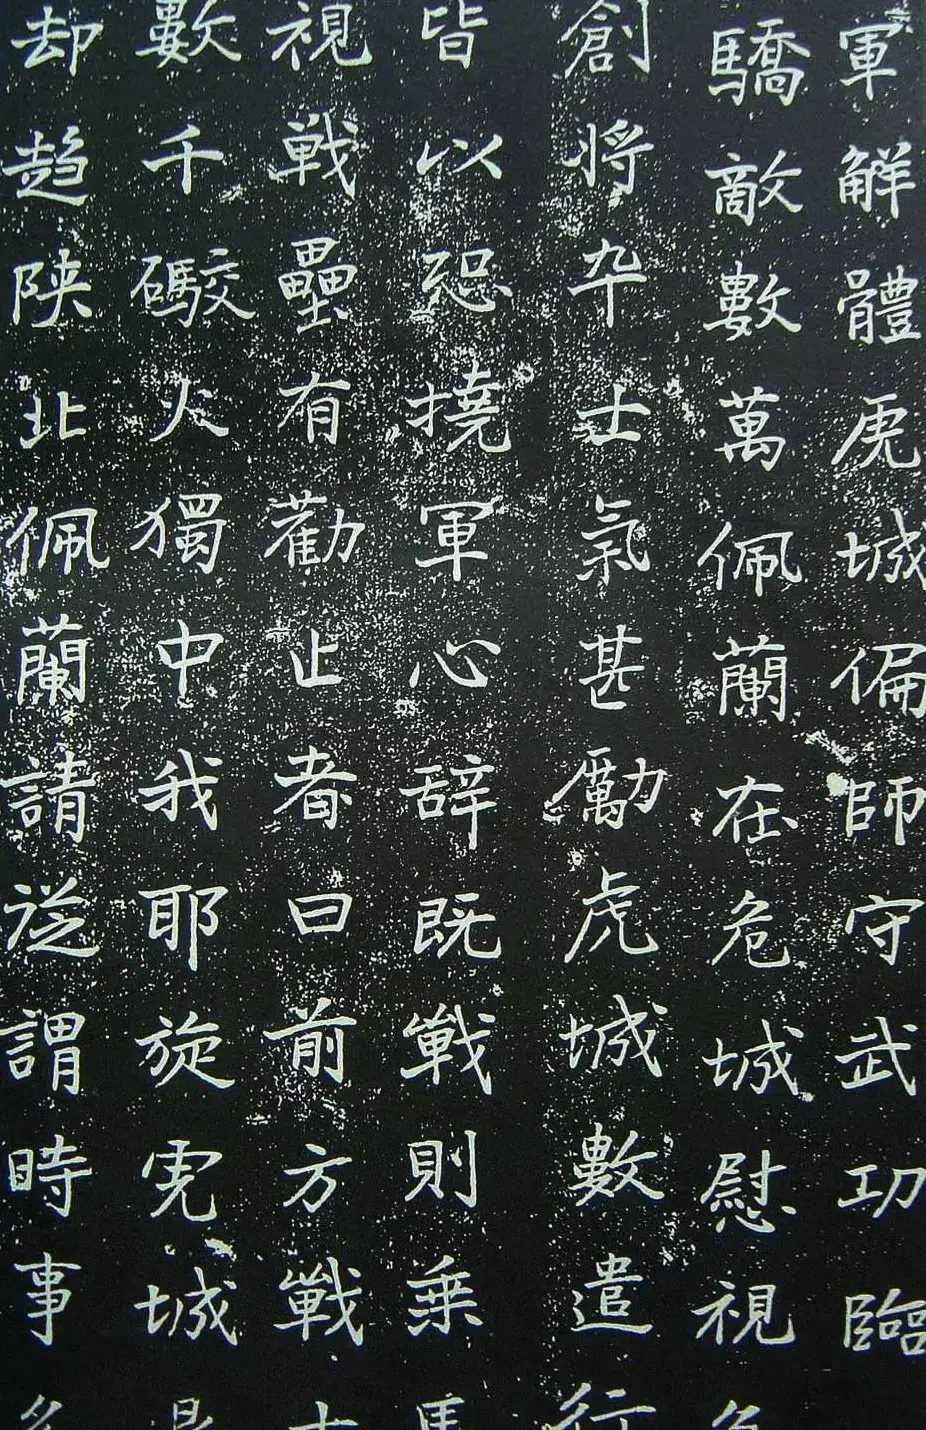 軍解體虎城偏師守武功臨
驕敵數萬佩蘭在危城慰視
創將卒士氣甚勵虎城數遣行
皆以恐撓軍心辞既戰則乘馬
視戰壘有勸止者曰前方戰士
數千礮火獨中我耶旋虎城
却趋陕北佩蘭請從謂時事